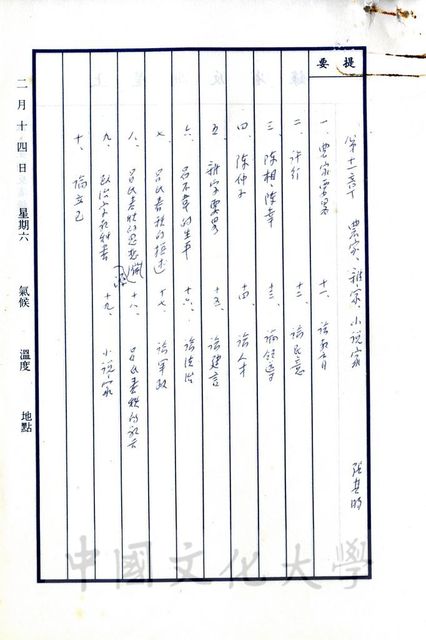 提要
第十一章 農家、雜家、小說家 張其昀
一、農家要略 十一、論教育
二、許行 十二、論民意
三、陳相、陳辛 十三、論領導
四、陳仲子 十四、論人才
五、雜家要略 十五、論建言
六、呂不韋的生平 十六、論法治
七、呂氏春秋的 十七、論軍政
八、呂氏春秋的思想 十八、呂氏春秋的
九、政治家 十九、小說家
十、論立己
二月十四日 星期六 氣候 溫度 地點
中國文化大學